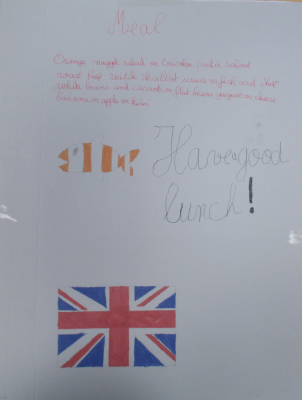 Meal
Orange nuggets salad or
roast beef with shallot sauce or fish and chips
white beans and carrots or flat beans yogurt or cheese
banana or apple or kiwi
Have a good
lunch!